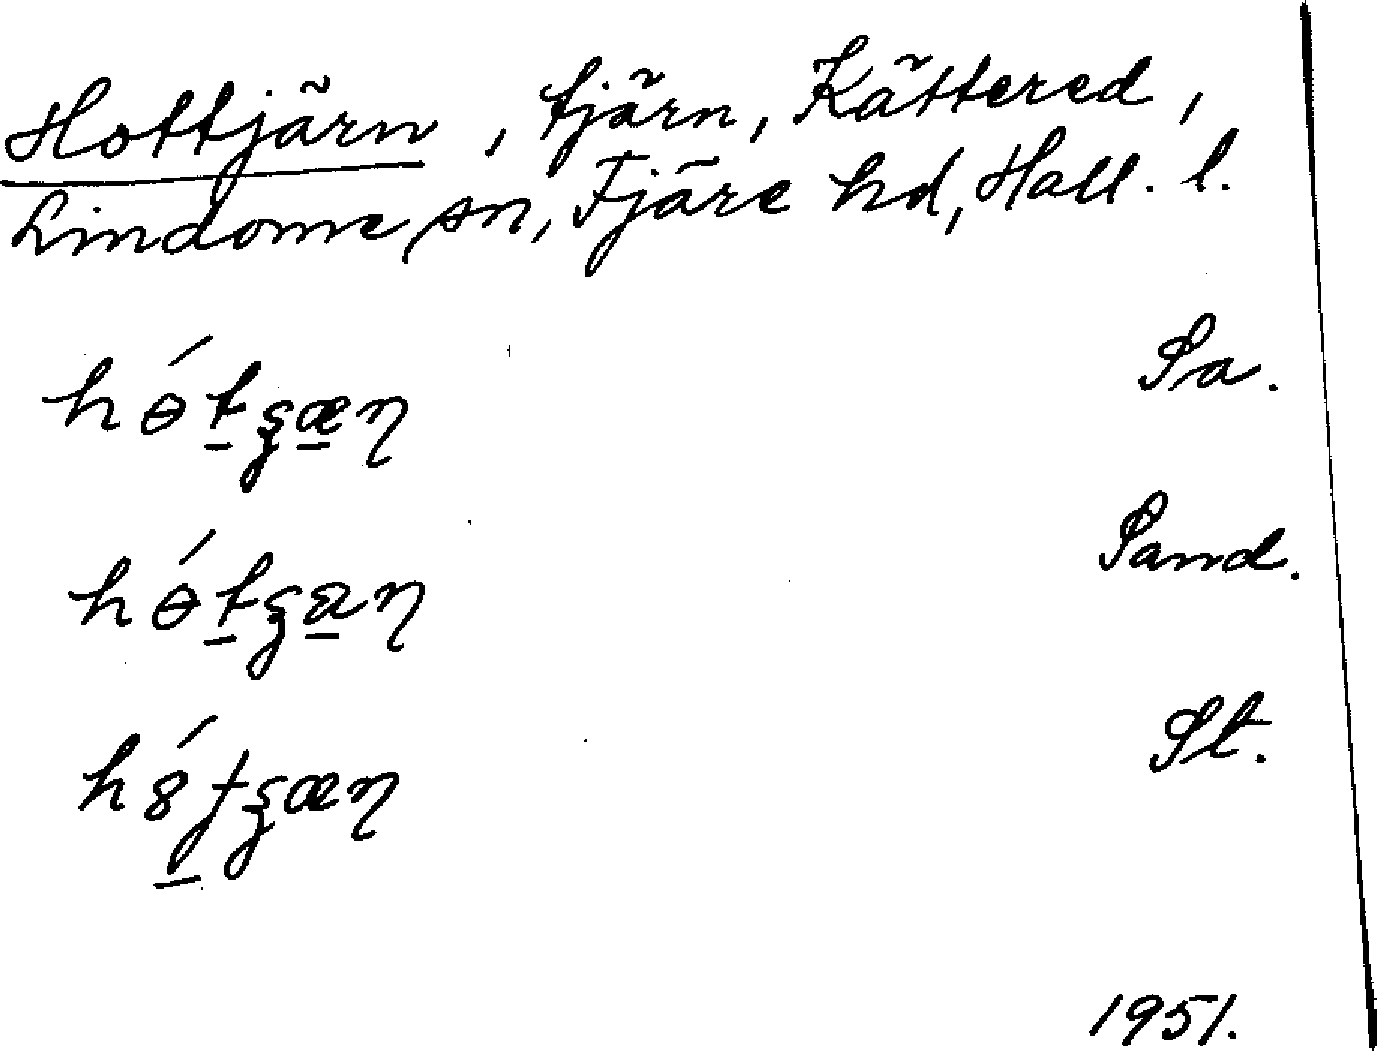 Hottjärn, tjärn, Kättered,
Lindome sn, Fjäre hd, Hall. l.
hɵ́t̲ʓæ̲ꞃ Sa.
hɵ́t̲ʓa̲ꞃ Sand.
St.
1951.